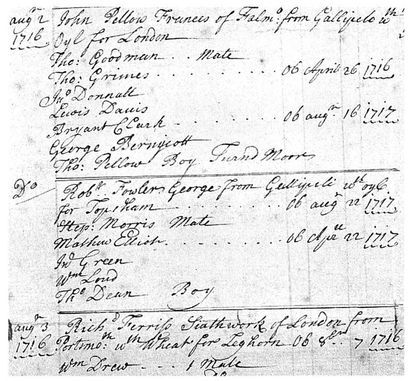 augst 2 John Pellow Frances of Falmo from Gallipoli wth
1716 Oyl for London
Tho: Goodman . Mate
Tho: Grimes . . . . . . . . . 06 April 26 1716
Jno Donnall
Lewis Davis
Bryant Clark . . . . . . . . 06 augst 16 1717
George Bernycott
Tho: Pellow Boy Turnd Moor
Do Robt Fowler George from Gallipoli wth oyl
for Topsham . . . . . . . . . 06 aug 22 1717
Hep: Morris Mate
Mathew Elliot . . . . . . . . 06 Apr 22 1717
Jno Green
Wm Loud
Tho Dean Boy
augst 3 Richd Ferriss Southwork of London from
1716 Portsmo wth Wheat for Leghorn 06 8br 7 1716
Wm Drew . . . . 1 Mate